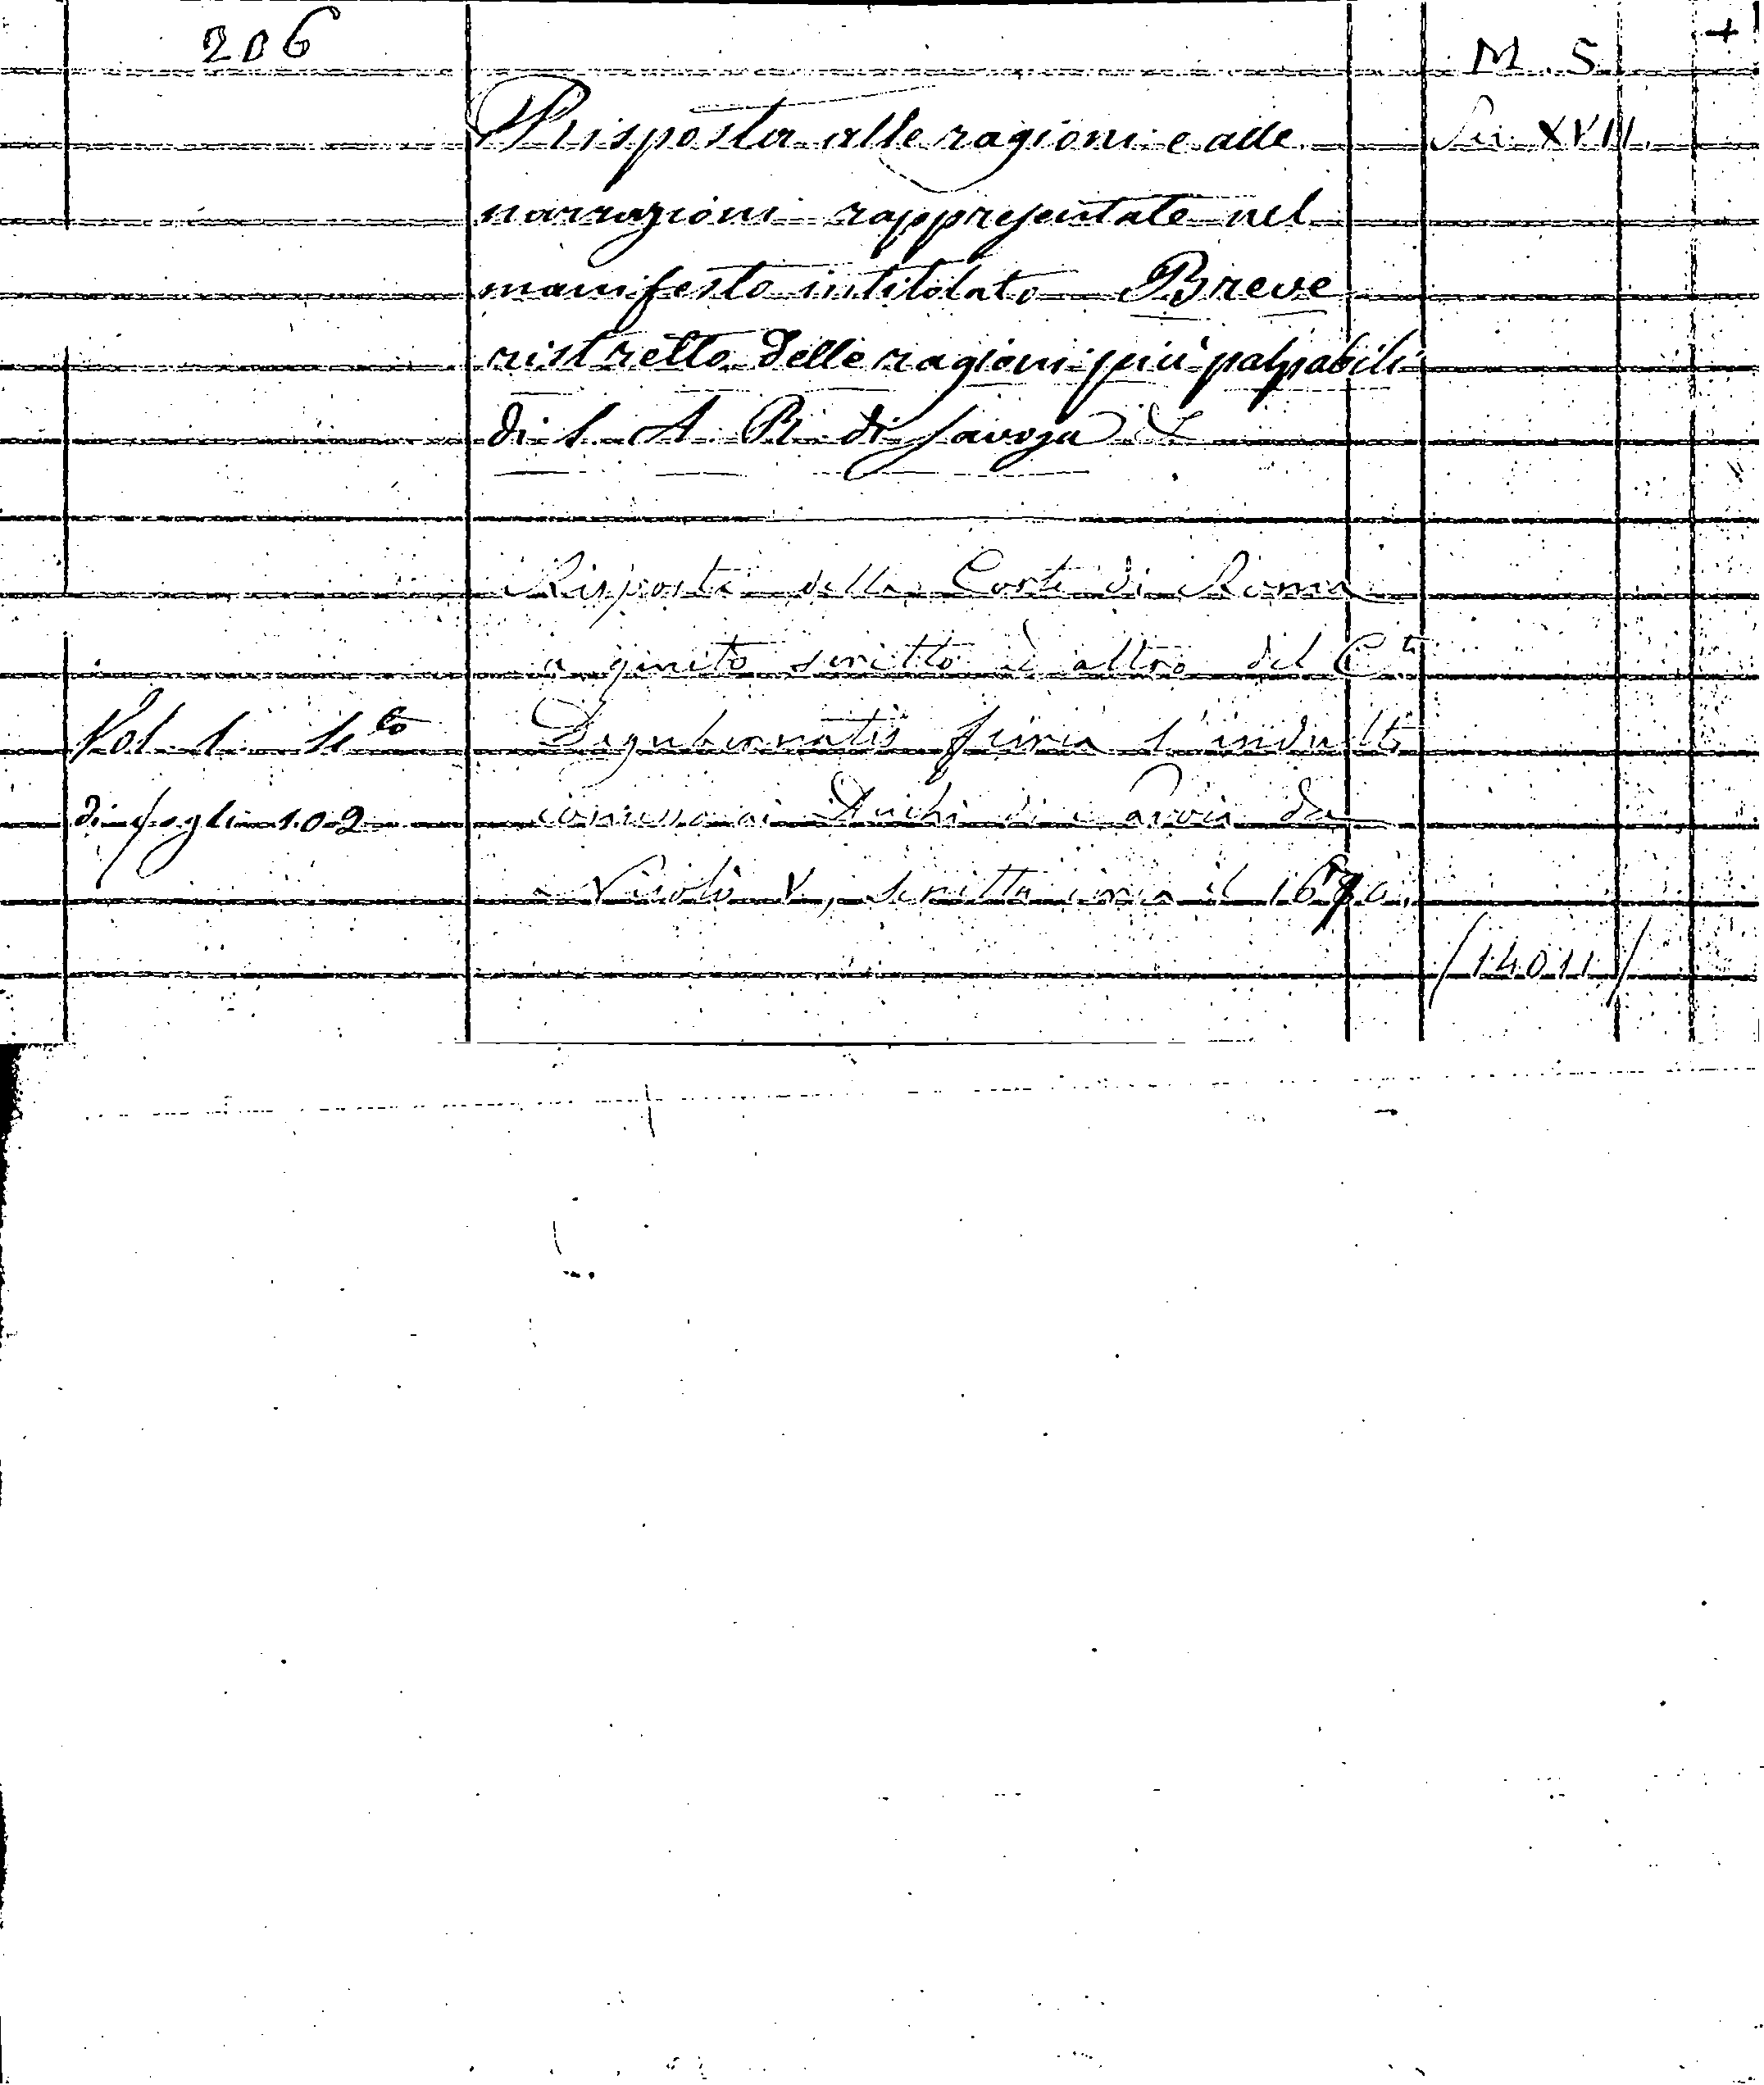 206
M. S.
+
Risposta alle ragioni e alle
Sec. XVII.
narrazioni rappresentate nel
manifesto intitolato Breve
ristretto delle ragioni più palpabili
di S. A. R. di Savoja &
Risposta della Corte di Roma
a scritto altro del C.te
Degubernatis l'indulto
Vol. 1. 4to
di fogli 102
concesso ai Duchi di Savoia da
Nicolò V, scritta circa il 1690.
/14011/